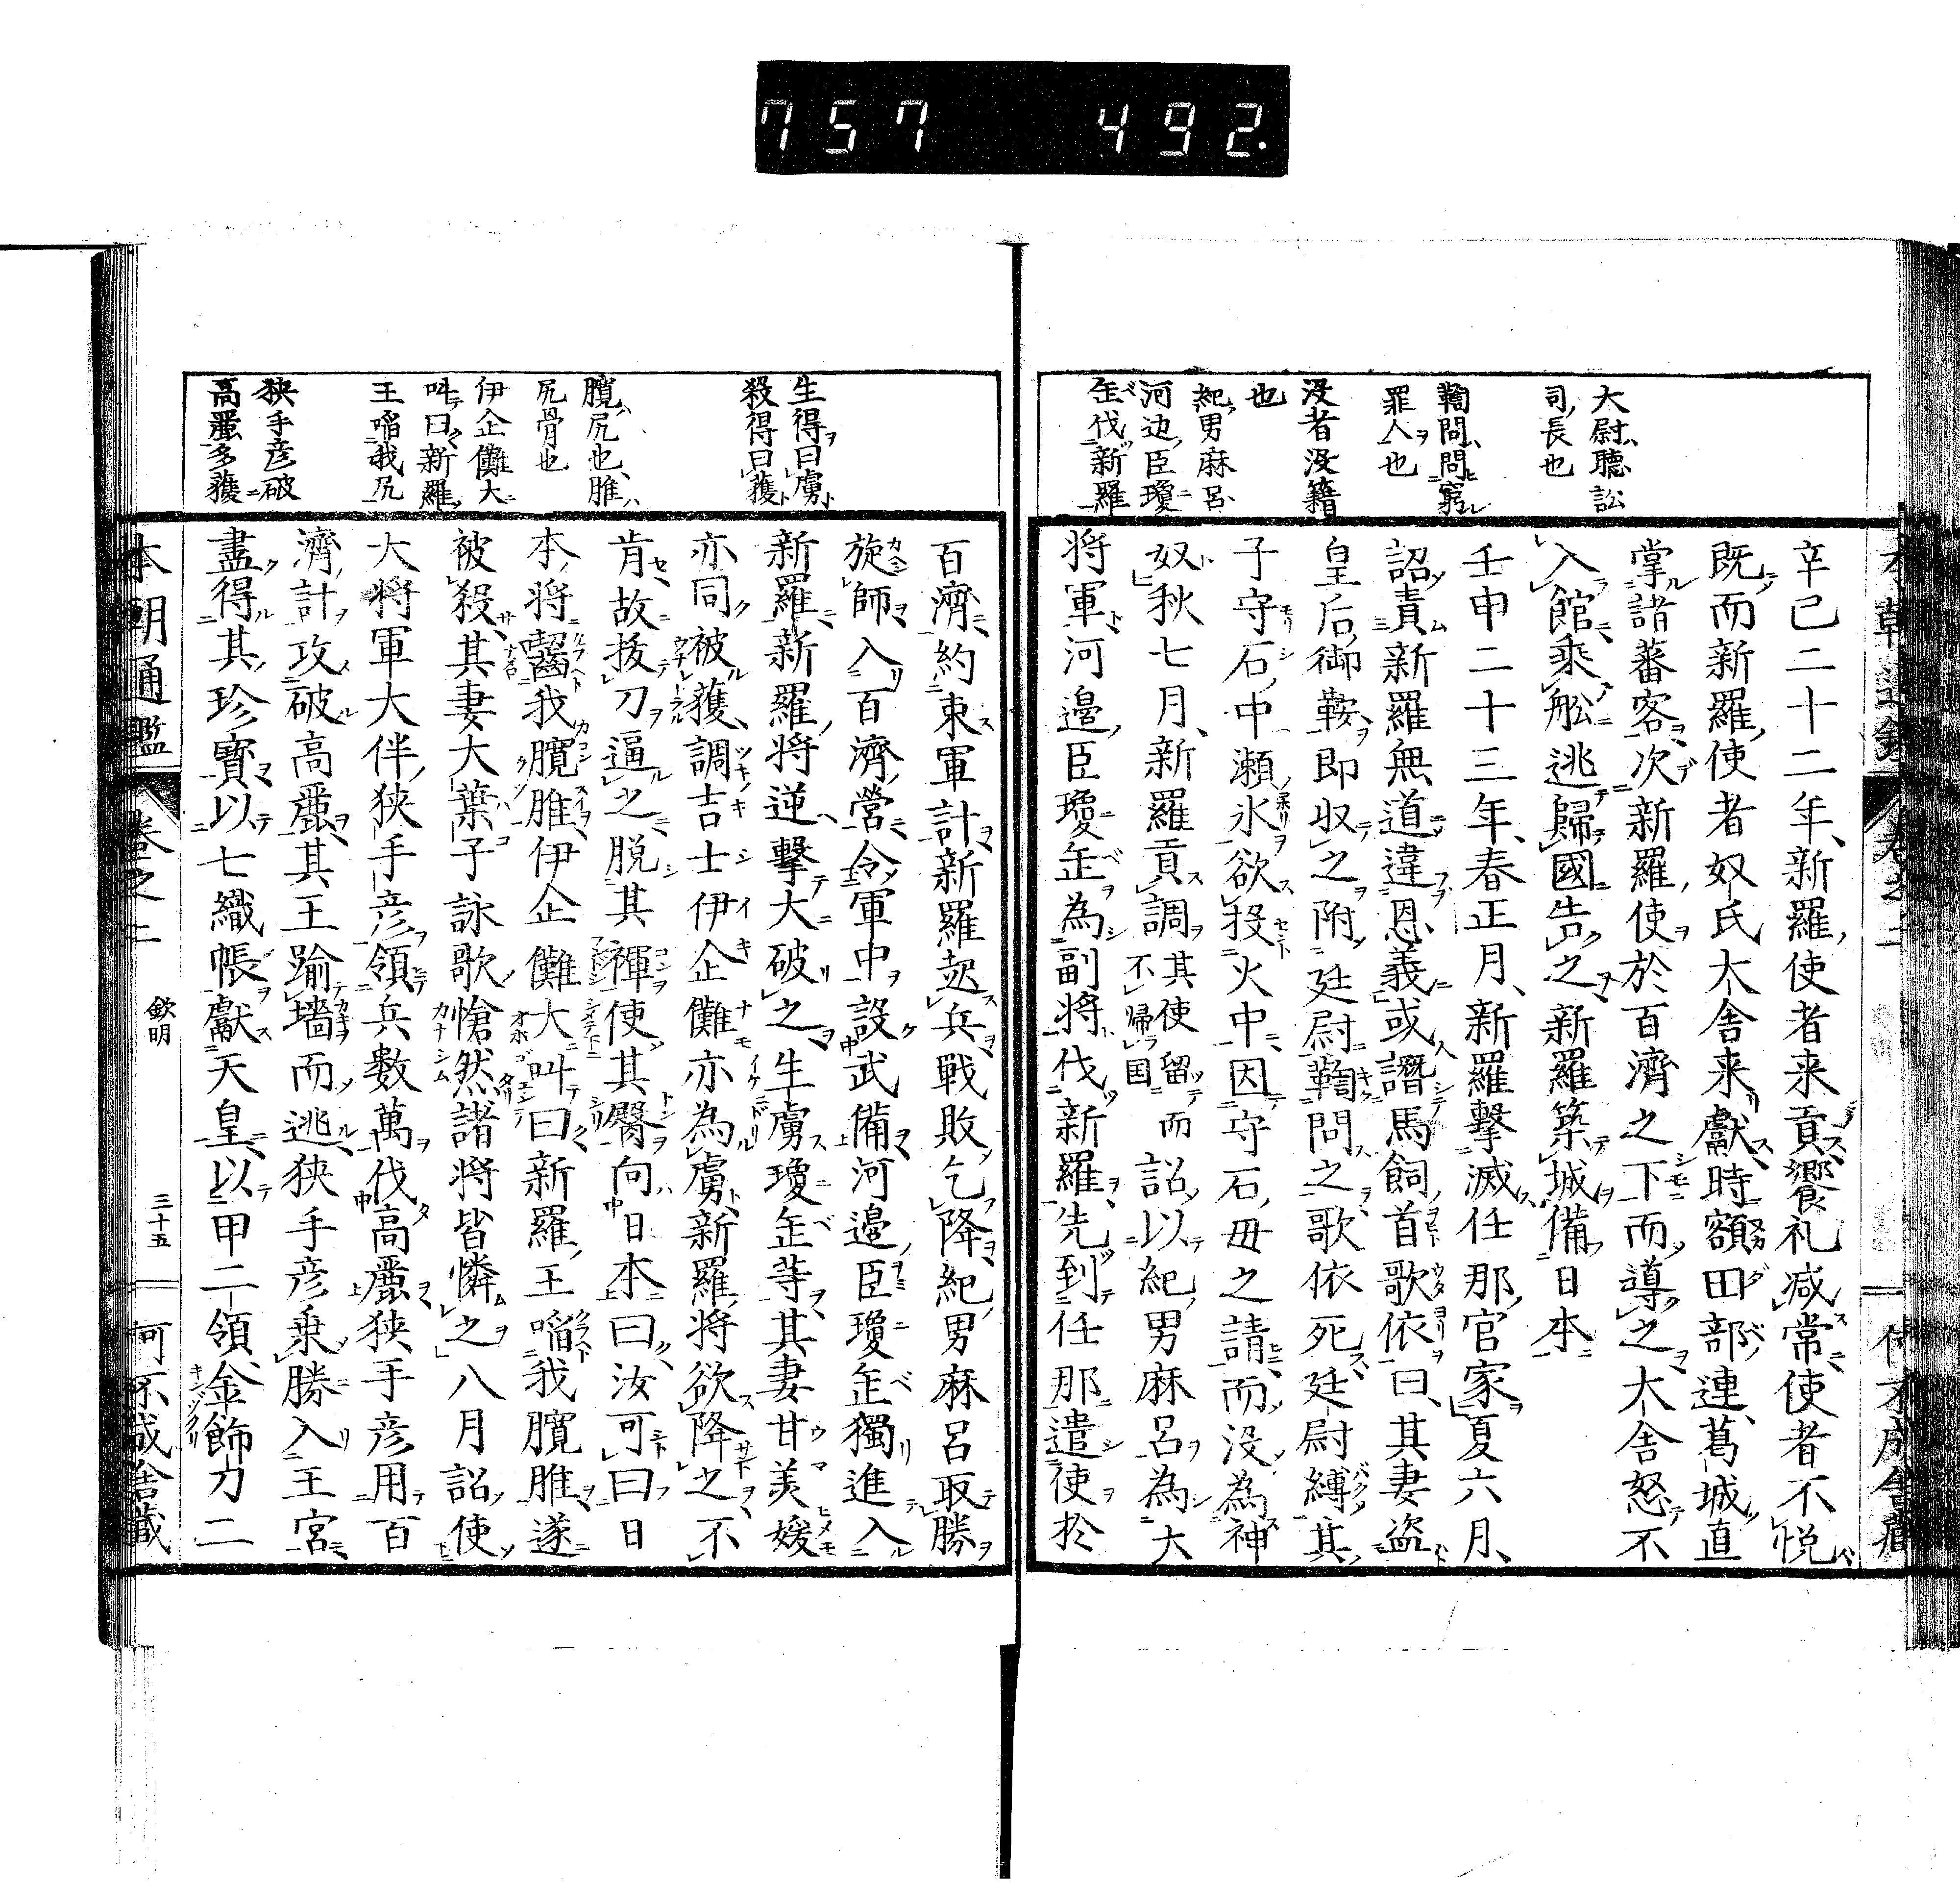 757 492.
大尉聴訟
司長也
鞫問問窮
罪人也
没者没籍
也
紀男麻呂
河边臣瓊
缶伐新羅
辛巳二十二年新羅使者来貢饗礼减常使者不悦
既而新羅使者奴氏大舎来獻時額田部連葛城直
掌諸蕃客次新羅使於百濟之下而導之大舎怒不
入館乘舩逃歸國告之新羅築城備日本
壬申二十三年春正月新羅擊滅任那官家夏六月
詔責新羅無道違恩義或譖馬飼首歌依曰其妻盗
皇后御鞍即収之附廷尉鞫問之歌依死廷尉縛其
子守石中瀬氷欲投火中因守石毋之請而没為神
奴秋七月新羅貢調其使留而不歸国詔以紀男麻呂為大
将軍河邉臣瓊缶為副將伐新羅先到任那遣使於
生得曰虜
殺得曰獲
臗尻也脽
尻骨也
伊企儺大
呌曰新羅
王㗖我尻
狹手彦破
高麗多獲
百濟約束軍計新羅起兵戰敗乞降紀男麻呂取勝
旋師入百濟營令軍中設武備河邉臣瓊缶獨進入
新羅新羅将逆擊大破之生虜瓊缶等其妻甘美媛
亦同被獲調吉士伊企儺亦為虜新羅将欲降之不
肯故拔刀逼之脱其褌使其臀向日本曰汝可曰日
本将齧我臗脽伊企儺大叫曰新羅王㗖我臗脽遂
被殺其妻大葉子詠歌愴然諸将皆憐之八月詔使
大将軍大伴狹手彦領兵數萬伐高麗狹手彦用百
濟計攻破高麗其王踰墻而逃狹手彦乗勝入王宮
盡得其珍寳以七織帳獻天皇以甲二領金飾刀二
本朝通鑑 卷之二 欽明 三十五